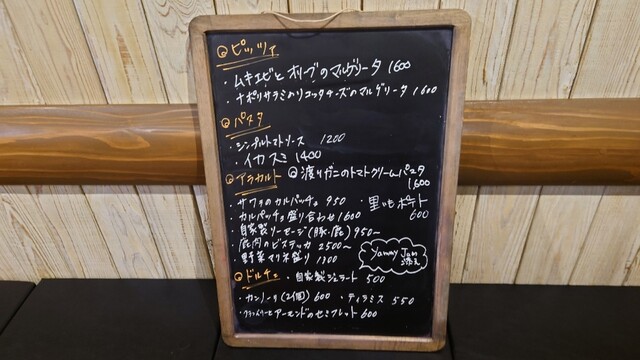 ピッツァ
・ムキエビとオリーブのマルゲリータ 1600
・ナポリサラミとリコッタチーズのマルゲリータ 1600
パスタ
・シンプルトマトソース 1200
・イカスミ 1400
・渡りガニのトマトクリームパスタ 1600
アラカルト
・サワラのカルパッチョ 950
・カルパッチョ盛り合わせ 1600
・自家製ソーセージ(豚・鹿) 950〜
・鹿肉のビステッカ 2500〜
・野菜マリネ盛り 1300
・里いもポテト 600
Yammy Jam 添え
ドルチェ
・自家製ジェラート 500
・カンノーリ(2個) 600
・ティラミス 550
・クランベリーとアーモンドのセミフレット 600